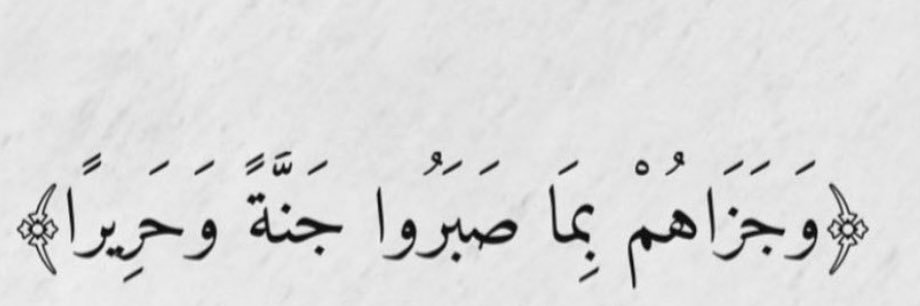 ﴿وَجَزَاهُمْ بِمَا صَبَرُوا جَنَّةً وَحَرِيرًا﴾